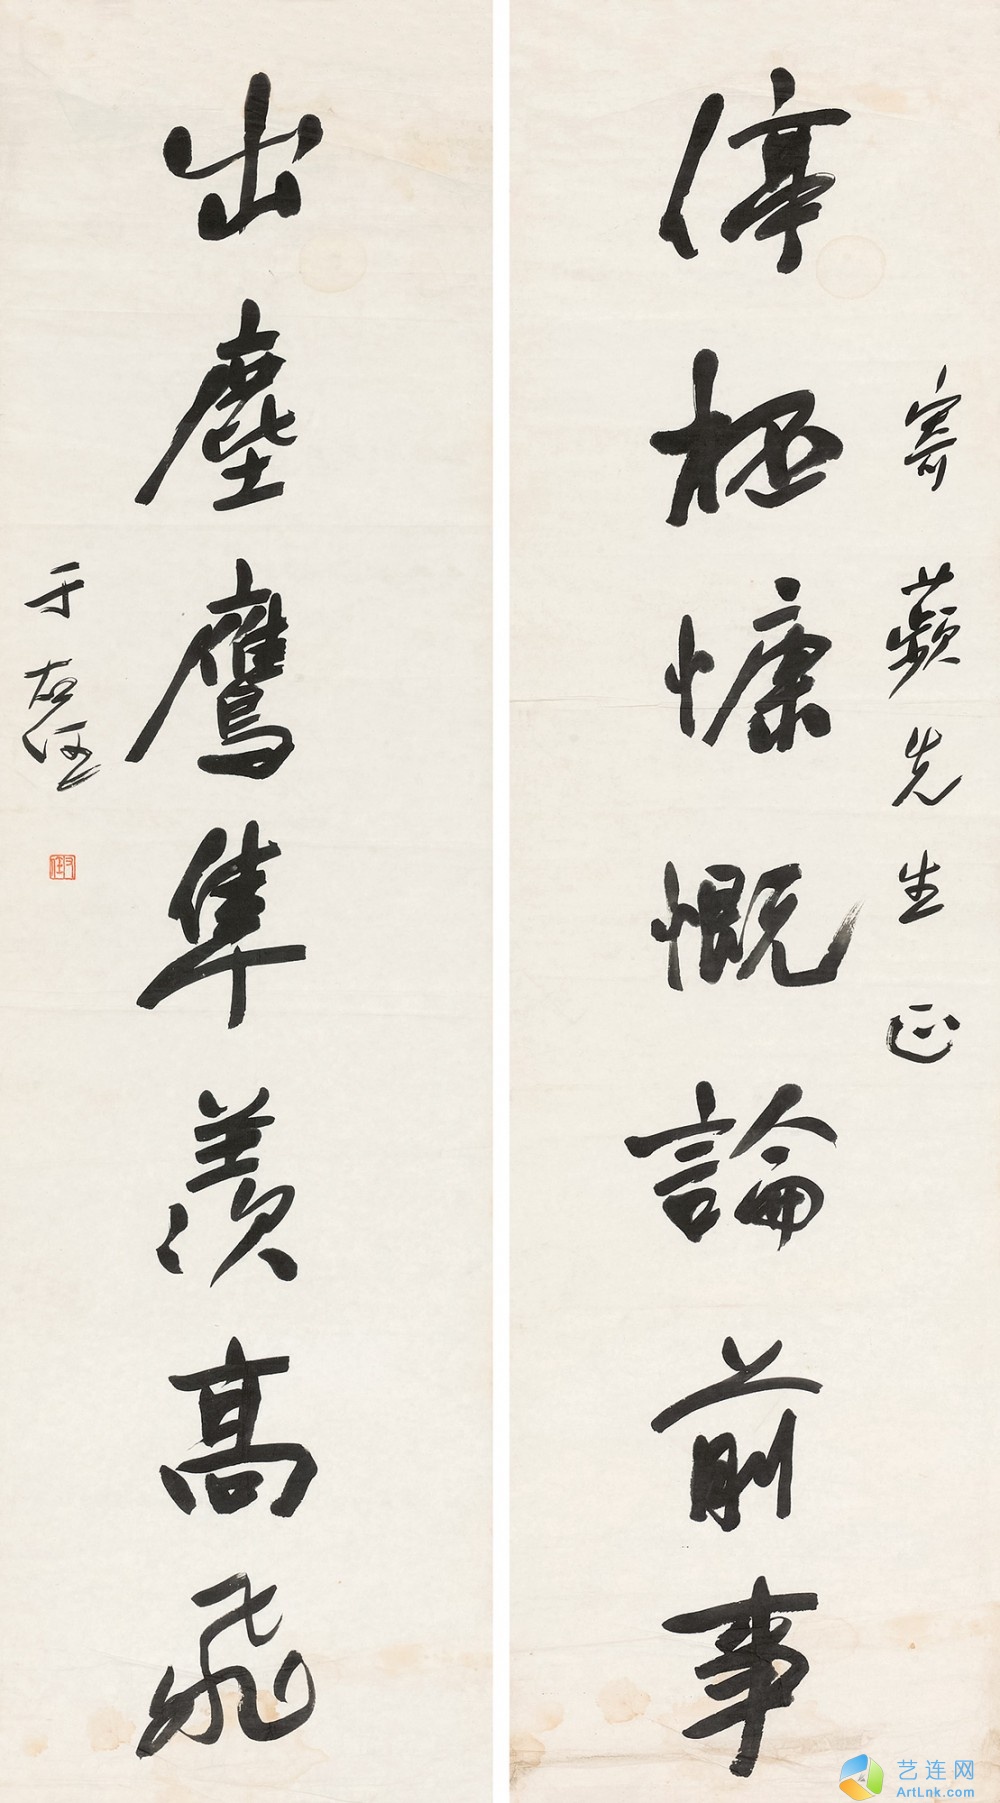 停柸慷慨論前事
寄蘋先生正
出塵鷹隼羨高飛
于右任
右任
艺连网
ArtLnk.com